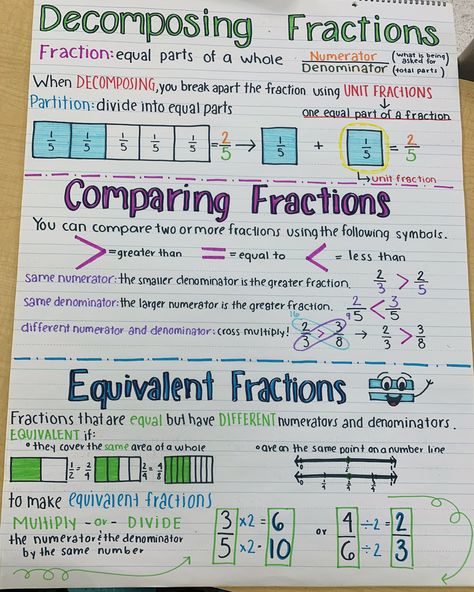 Decomposing Fractions
Fraction: equal parts of a whole Numerator (what is being asked for)
Denominator (total parts)
When DECOMPOSING, you break apart the fraction using UNIT FRACTIONS
Partition: divide into equal parts one equal part of a fraction
1/5 1/5 1/5 1/5 1/5 = 2/5 → 1/5 + 1/5 = 2/5
unit fraction
Comparing Fractions
You can compare two or more fractions using the following symbols.
> = greater than = = equal to < = less than
same numerator: the smaller denominator is the greater fraction. 2/3 > 2/5
same denominator: the larger numerator is the greater fraction. 2/5 < 3/5
different numerator and denominator: cross multiply! 16 2/3 > 9 3/8 → 2/3 > 3/8
Equivalent Fractions
Fractions that are equal but have DIFFERENT numerators and denominators.
EQUIVALENT if:
• they cover the same area of a whole • are on the same point on a number line
1/2 = 2/4 2/4 = 4/8
to make equivalent fractions
MULTIPLY -or- DIVIDE
the numerator & the denominator
by the same number
3/5 x2 = 6 x2 = 10 or 4/6 ÷2 = 2 ÷2 = 3